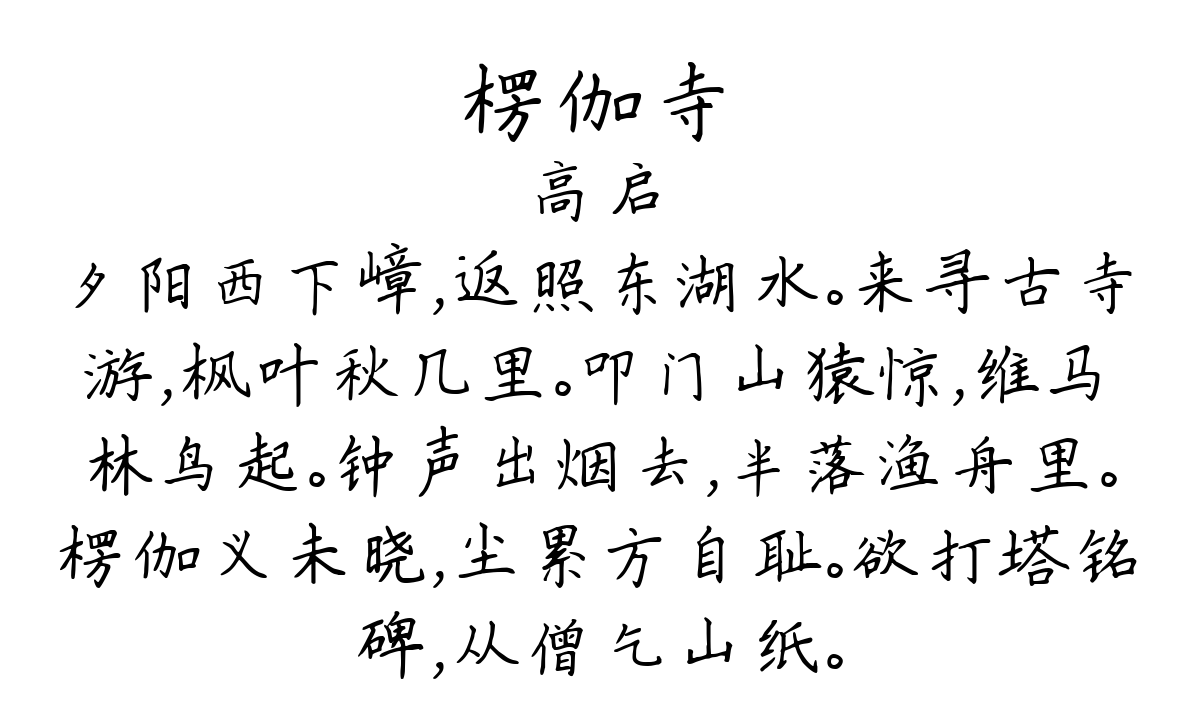 楞伽寺
高启
夕阳西下嶂,返照东湖水。来寻古寺
游,枫叶秋几里。叩门山猿惊,维马
林鸟起。钟声出烟去,半落渔舟里。
楞伽义未晓,尘累方自耻。欲打塔铭
碑,从僧乞山纸。